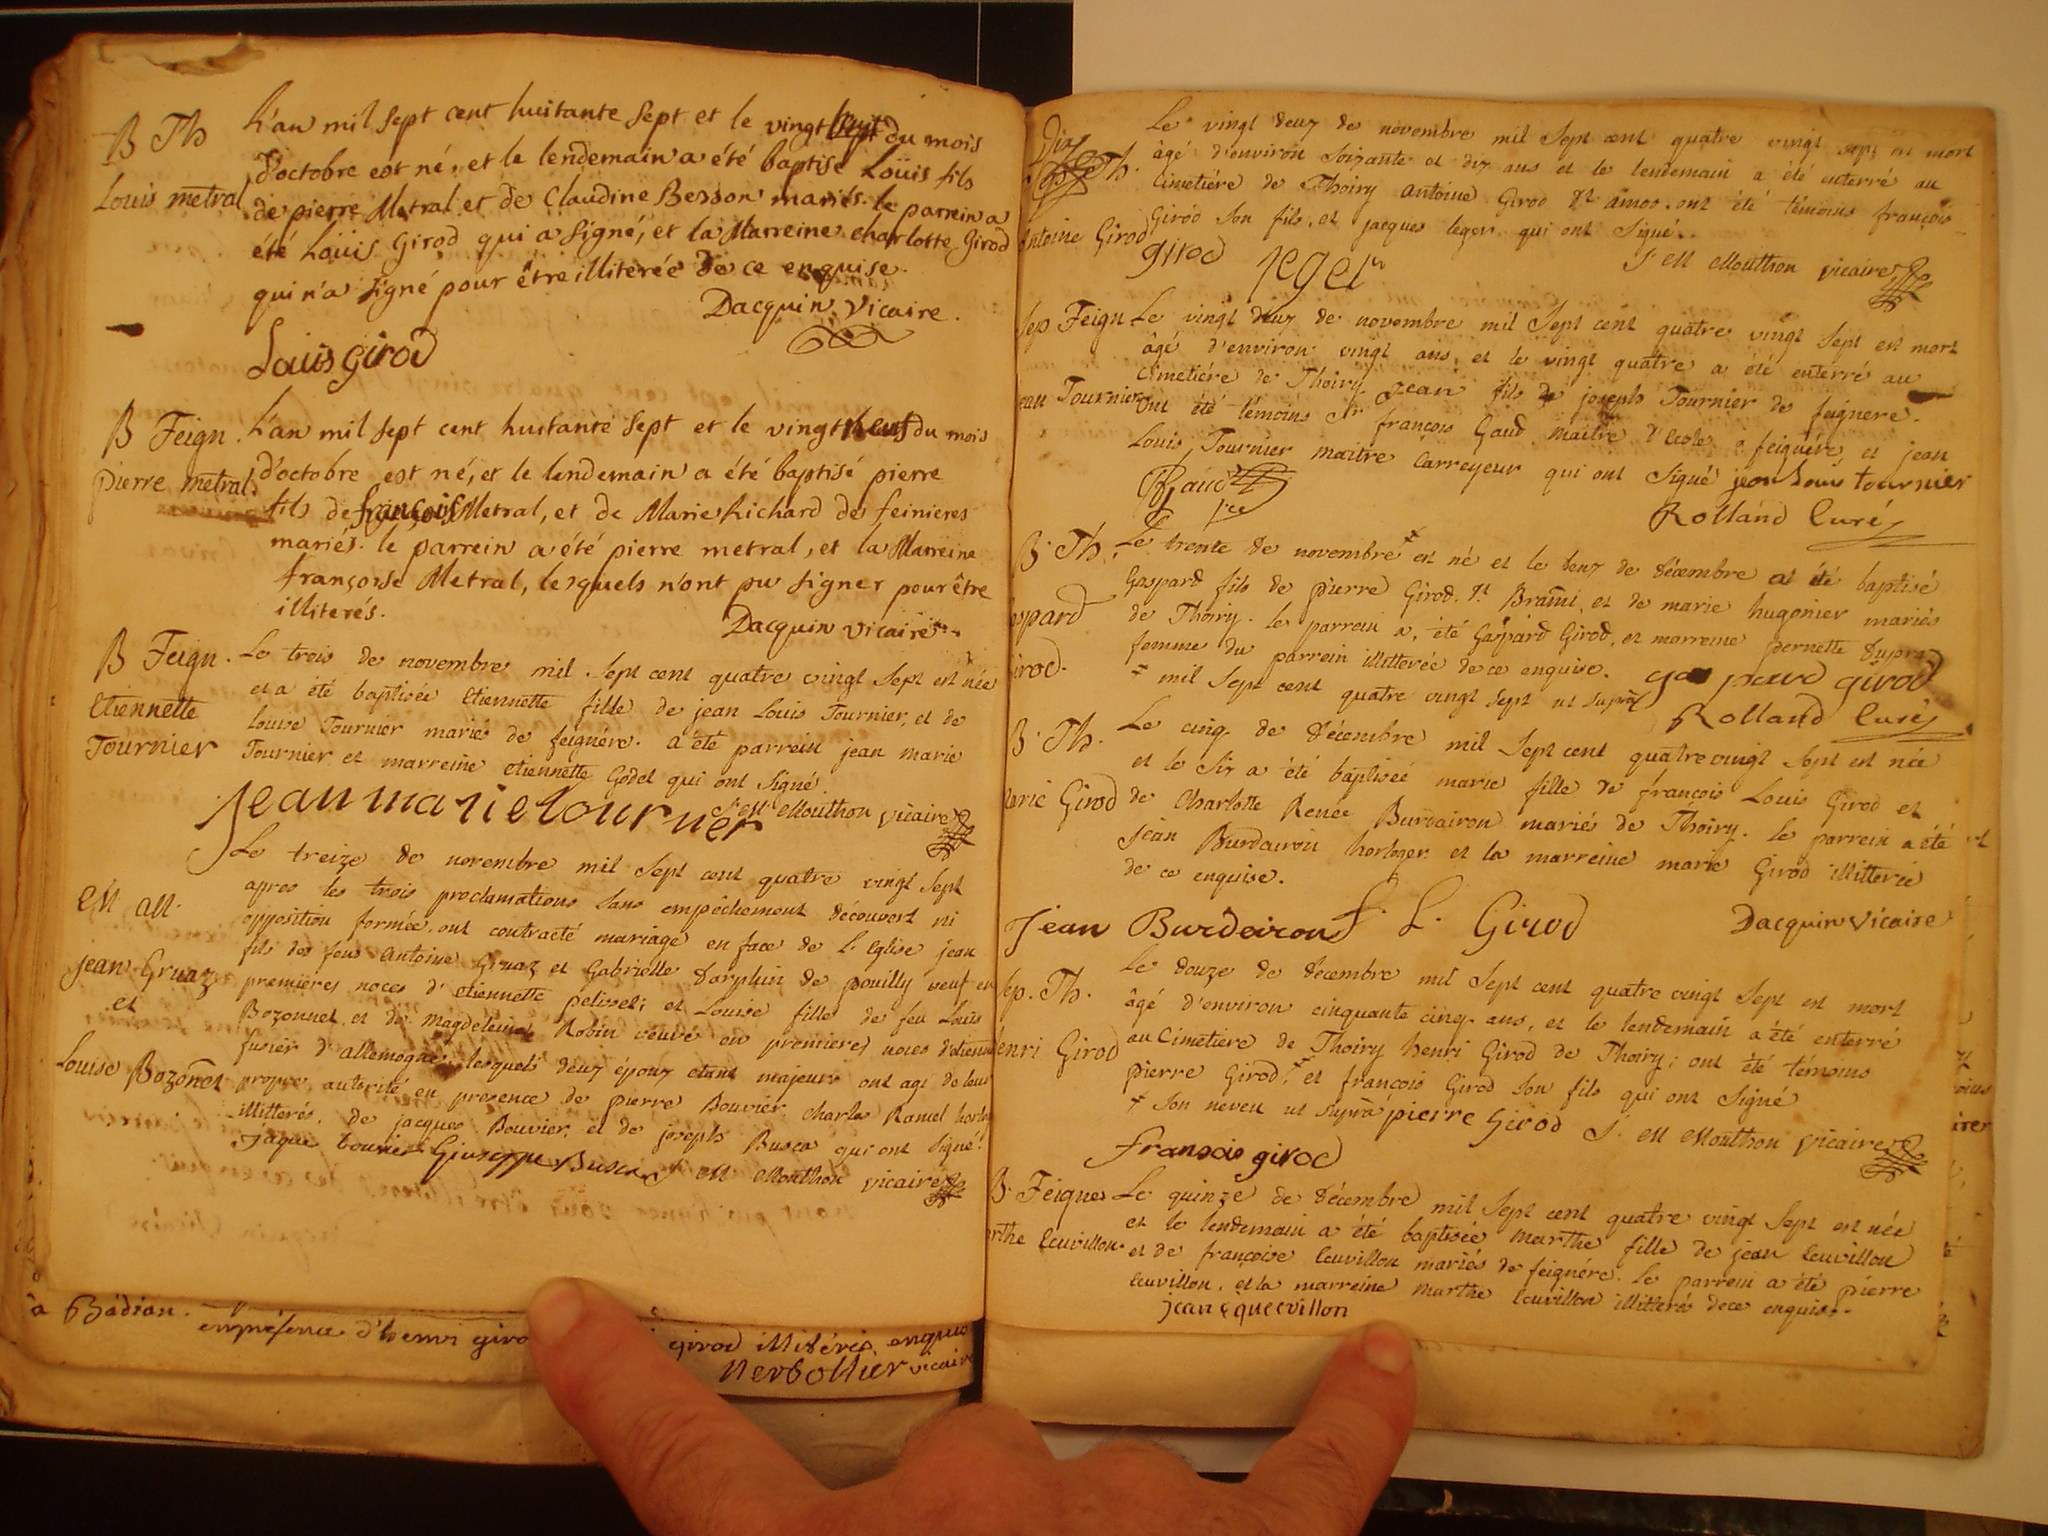 B Th
Louis metral
L'an mil sept cent huitante sept et le vingt huit du mois
d'octobre est né, et le lendemain a été baptisé Loüis fils
de pierre Metral et de Claudine Besson mariés. le parrein a
été Loüis Girod qui a signé, et la Marreine charlotte Girod
qui n'a signé pour être illiterée de ce enquise.
Dacquin Vicaire.
Louis girod
B Feign.
pierre metral.
L'an mil sept cent huitante sept et le vingt neuf du mois
d'octobre est né, et le lendemain a été baptisé pierre
fils de françois Metral, et de Marie Richard de feinieres
mariés. le parrein a été pierre metral, et la Marreine
françoise Metral, lesquels n'ont pu signer pour être
illiterés.
Dacquin vicaire
B Feign.
Etiennette
Tournier
Le trois de novembre mil sept cent quatre vingt sept est née
et a été baptisée Etiennette fille de jean Louis Tournier, et de
louise Tournier mariés de feignére. a été parrein jean marie
Tournier et marreine etiennette Godet qui ont signé.
jean marie tournier
J. M Mouthon vicaire
M All.
jean Gruaz
et
Louise Bozonet
Le treize de novembre mil sept cent quatre vingt sept
apres les trois proclamations sans empêchement découvert ni
opposition formée, ont contracté mariage en face de l'Eglise jean
fils des feus antoine Gruaz et Gabrielle Darphin de pouilly veuf en
premières noces d'etiennette pelisset; et Louise fille de feu Louis
Bozonnet et de Magdeleine Robin veuve en premieres noces d'etienne
fusier d'allemogne, lesquels deux époux etant majeurs ont agi de leur
propre autorité en presence de pierre Bouvier, charle Ramel
illitterés, de jacques Bouvier, et de joseph Busca qui ont signé.
jaque bouvier Giuseppe Busca J M Mouthon vicaire
à Badian.
en présence d'henri giro girod illitérés enquis
Nerbollier vicaire
Th.
Antoine Girod
Le vingt deux de novembre mil sept cent quatre vingt sept est mort
âgé d'environ soixante et dix ans et le lendemain a été enterré au
Cimetiére de Thoiry antoine Girod dt amoo. ont été témoins françois
Girod son fils, et jacques leger qui ont signé.
girod leger
J M Mouthon vicaire
Sep Feign
jean Tournier
Le vingt deux de novembre mil sept cent quatre vingt sept est mort
âgé d'environ vingt ans, et le vingt quatre a été enterré au
Cimetiére de Thoiry jean fils de joseph Tournier de feignere.
ont été témoins Sr françois Gaud maitre d'école à feignére, et jean
Louis Tournier maitre Carreyeur qui ont signé jean Louis tournier
Rolland Curé
B. Th.
Gaspard
Girod.
Le trente de novembre + est né et le deux de décembre a été baptisé
Gaspard fils de pierre Girod dt Brami, et de marie hugonier mariés
de Thoiry. le parrein a été Gaspard Girod, et marreine pernette
femme du parrein illitterée de ce enquise. gaspard girod
+ mil sept cent quatre vingt sept ut supra
Rolland Curé
B. Th.
Marie Girod
Le cinq de décembre mil sept cent quatre vingt sept est née
et le six a été baptiseé marie fille de françois Louis Girod et
de Charlotte Renée Burdairon mariés de Thoiry. le parrein a été
jean Burdairon horloger et la marreine marie Girod illitterée
de ce enquise.
Jean Burdairon F. L. Girod
Dacquin Vicaire
Sep. Th.
henri Girod
Le douze de decembre mil sept cent quatre vingt sept est mort
âgé d'environ cinquante cinq ans, et le lendemain a été enterré
au Cimetiere de Thoiry henri Girod de Thoiry; ont été témoins
pierre Girod, + et françois Girod son fils qui ont signé
+ son neveu ut supra pierre Girod J. M Mouthon vicaire
fransois girod
B. Feignes
Marthe Ecuvillon
Le quinze de décembre mil sept cent quatre vingt sept est née
et le lendemain a été baptisée marthe fille de jean Ecuvillon
et de françoise Ecuvillon mariés de feignére. le parrein a été pierre
Ecuvillon, et la marreine marthe Ecuvillon illitterés de ce enquis.
jean equevillon